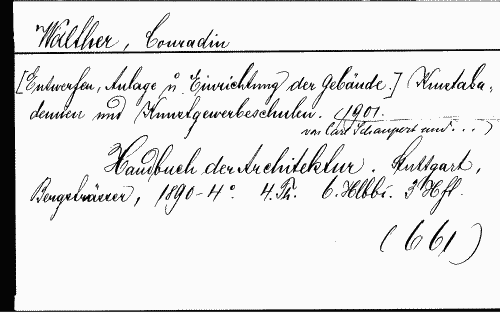 Walther, Conradin
[Entwerfen, Anlage u. Einrichtung der Gebäude.] Kunstaka-
demien und Kunstgewerbeschulen. 1901.
von Carl Schaupert und ...)
Handbuch der Architektur. Stuttgart,
Bergsträsser, 1890-4°. 4. Th. 6. Hlbbd. 3 Hft.
(661)